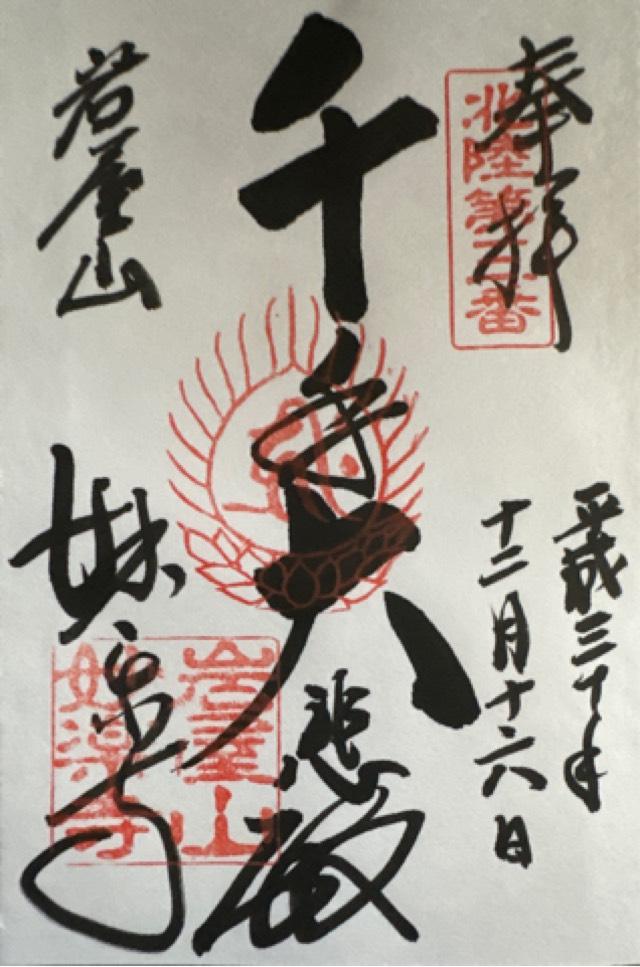 奉拝
北陸第三番
平成三十年
十二月十六日
千手大悲殿
岩屋山
妙楽寺
岩屋山
妙楽寺